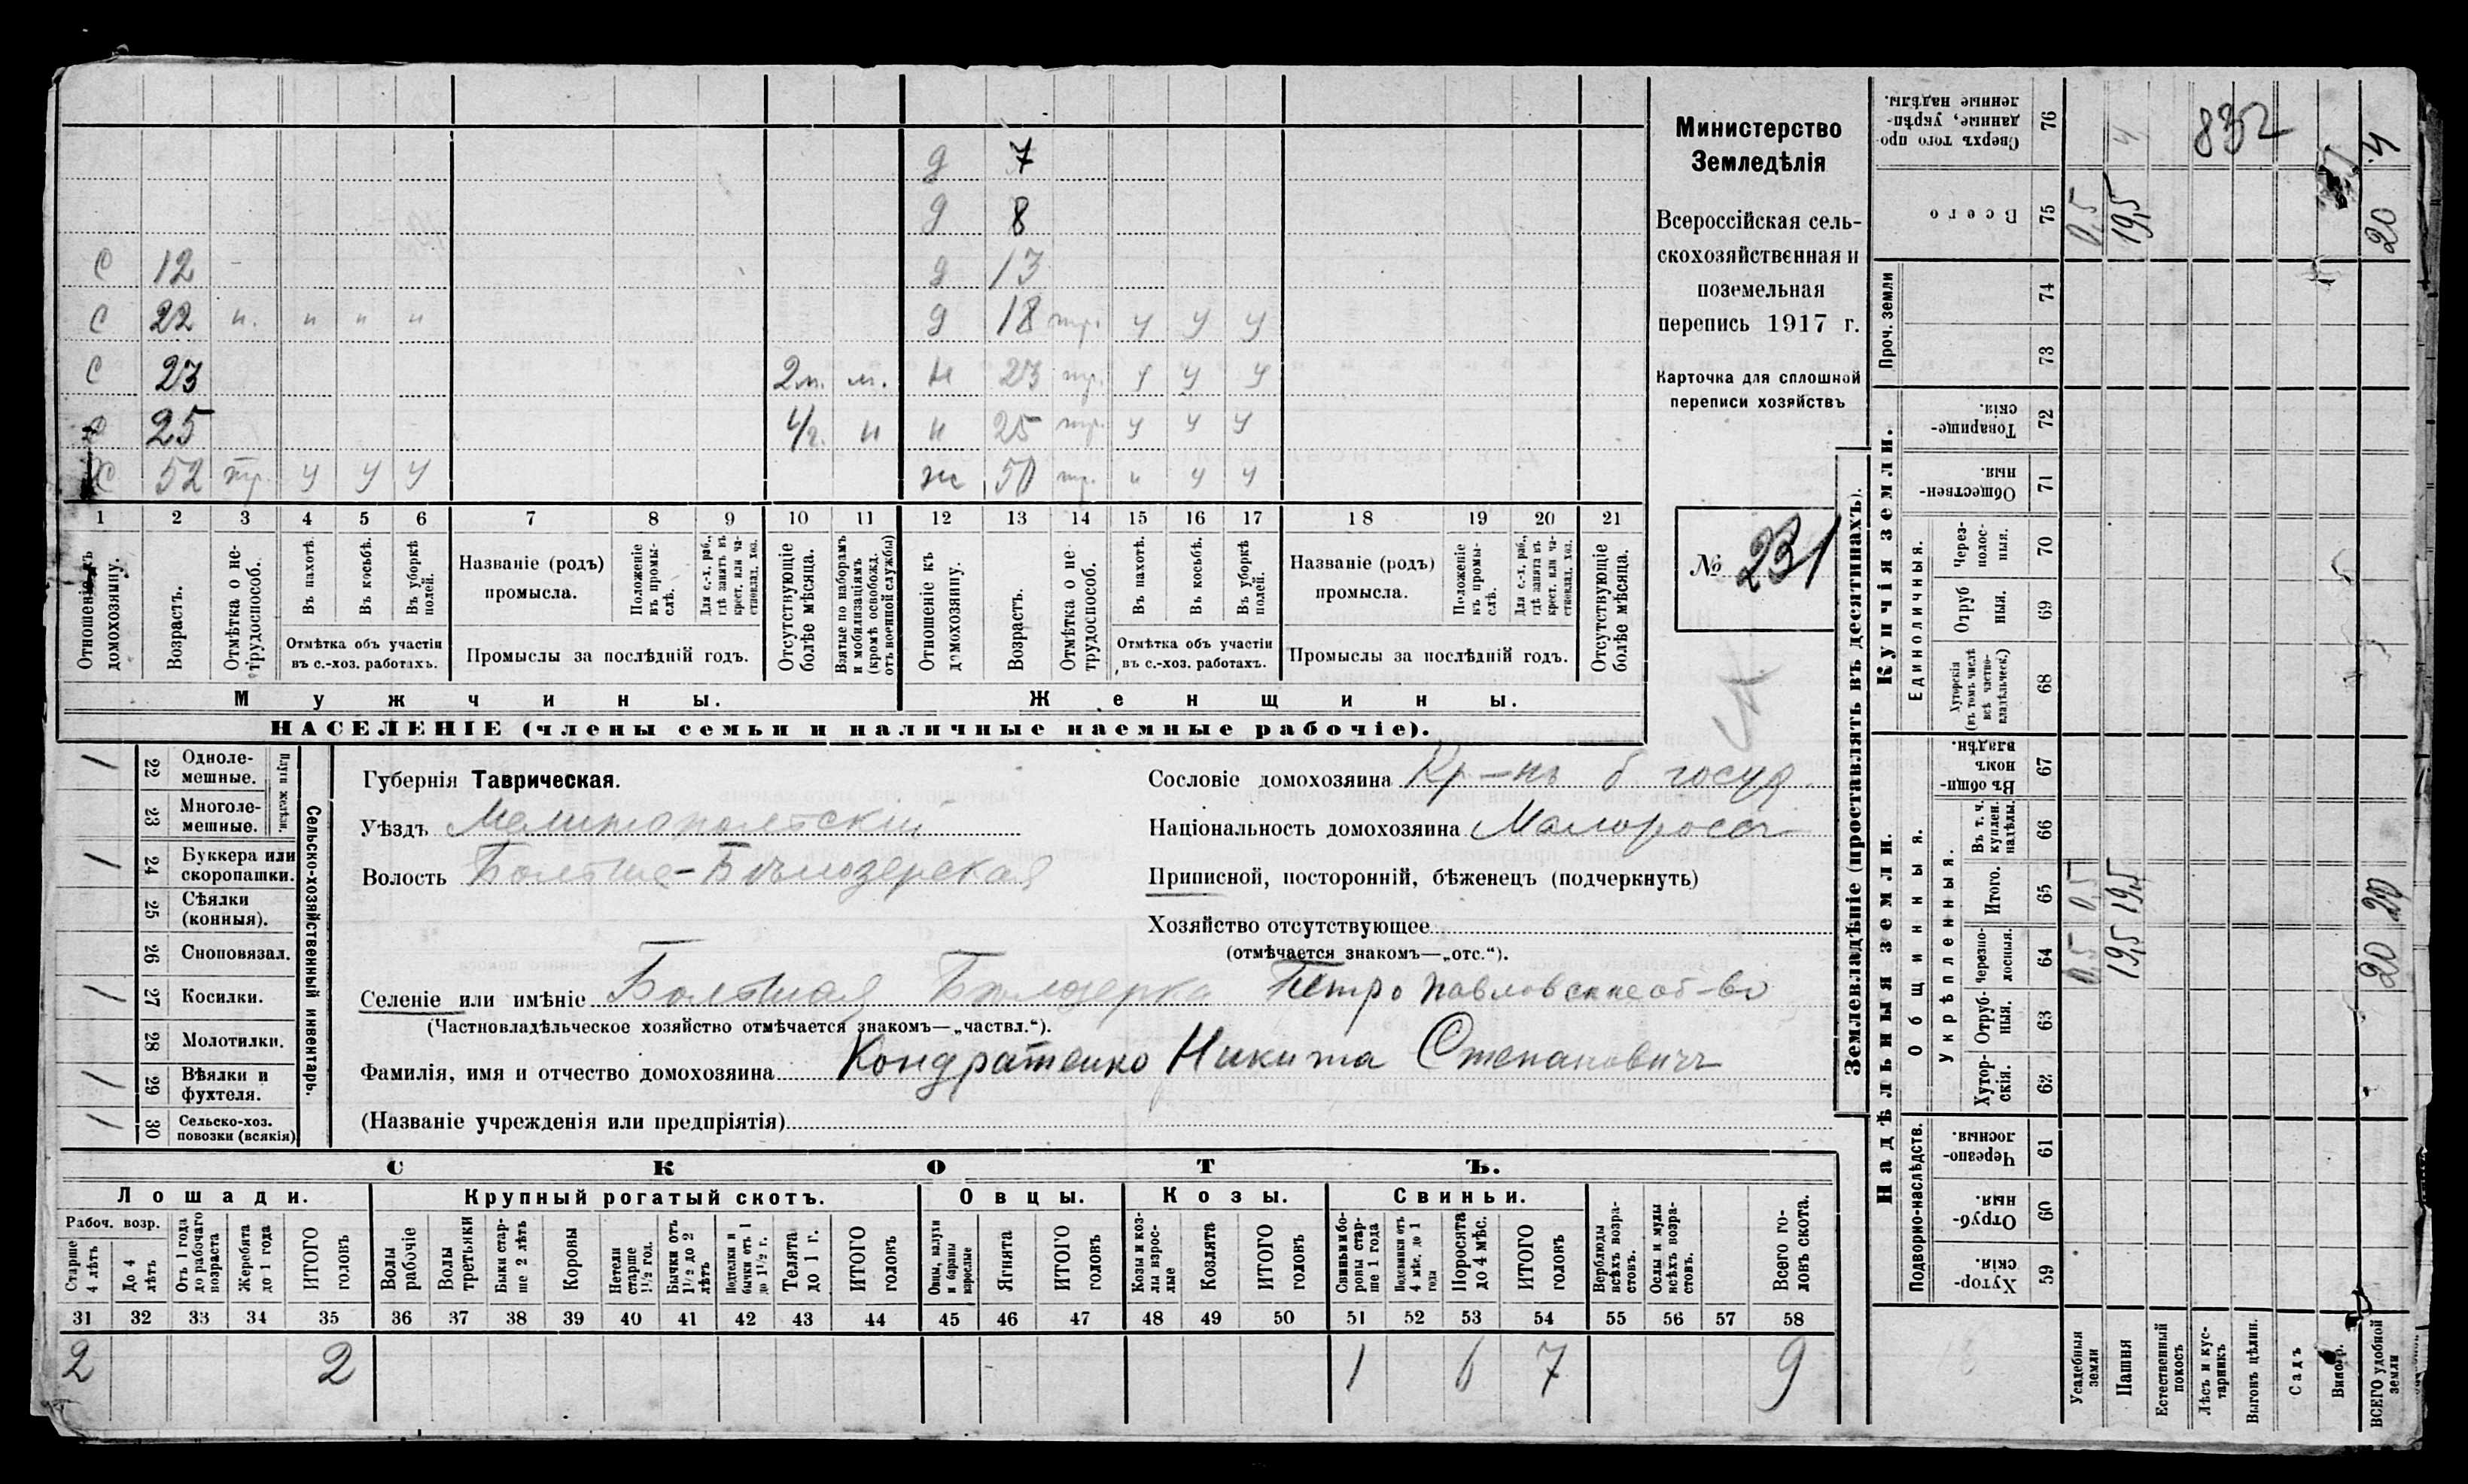 д 7
д 8
С 12 д 13
С 22 н. " " " д 18 тр. у у у
С 23 2 м. м. н 23 тр. у у у
С 25 1/г. н н 25 тр. у у у
Х 52 тр. у у у ж 50 тр. " у у
1 2 3 4 5 6 7 8 9 10 11 12 13 14 15 16 17 18 19 20 21
Отношеніе къ домохозяину.
Возрастъ.
Отмѣтка о не-трудоспособ.
Въ пахотѣ.
Въ косьбѣ.
Въ уборкѣ полей.
Отмѣтка объ участіи
въ с.-хоз. работахъ.
Названіе (родъ)
промысла.
Положеніе въ промы-слѣ.
Для с.-х. раб., гдѣ занятъ въ крест. или ча-стновлад. хоз.
Промыслы за послѣдній годъ.
Отсутствующіе болѣе мѣсяца.
Взятые по наборамъ и мобилизаціямъ (кромѣ освобожд. отъ военной службы)
Отношеніе къ домохозяину.
Возрастъ.
Отмѣтка о не трудоспособ.
Въ пахотѣ.
Въ косьбѣ.
Въ уборкѣ полей.
Отмѣтка объ участіи
въ с.-хоз. работахъ.
Названіе (родъ)
промысла.
Положеніе въ промы-слѣ.
Для с.-х. раб., гдѣ занята въ крест. или ча-стновлад. хоз.
Промыслы за послѣдній годъ.
Отсутствующіе болѣе мѣсяца.
Мужчины. Женщины.
НАСЕЛЕНІЕ (члены семьи и наличные наемные рабочіе).
Министерство
Земледѣлія
Всероссійская сель-
скохозяйственная и
поземельная
перепись 1917 г.
Карточка для сплошной
переписи хозяйствъ
№ 231
Сельско-хозяйственный инвентарь.
Плуги желѣзн.
1 22 Одноле-мешные.
23 Многоле-мешные.
1 24 Буккера или скоропашки.
25 Сѣялки (конныя).
26 Сноповязал.
1 27 Косилки.
28 Молотилки.
1 29 Вѣялки и фухтеля.
1 30 Сельско-хоз. повозки (всякія)
Губернія Таврическая.
Уѣздъ Мелитопольскій
Волость Больше-Бѣлозерская
Сословіе домохозяина Кр-нъ б. госуд.
Національность домохозяина Малороссъ
Приписной, посторонній, бѣженецъ (подчеркнуть)
Хозяйство отсутствующее
(отмѣчается знакомъ—„отс.“).
Селеніе или имѣніе Большая Бѣлозерка Петропавловское об-во
(Частновладѣльческое хозяйство отмѣчается знакомъ—„частвл.“).
Фамилія, имя и отчество домохозяина Кондратенко Никита Степановичъ
(Названіе учрежденія или предпріятія)
СКОТЪ.
Лошади. Крупный рогатый скотъ. Овцы. Козы. Свиньи.
Рабоч. возр.
Старше 4 лѣтъ
До 4 лѣтъ
Отъ 1 года до рабочаго возраста
Жеребята до 1 года
ИТОГО головъ
Волы рабочіе
Волы третьяки
Быки стар-ше 2 лѣтъ
Коровы
Нетели старше 1½ год.
Бычки отъ 1½ до 2 лѣтъ
Подтелки и бычки отъ 1 до 1½ г.
Телята до 1 г.
ИТОГО головъ
Овцы, валухи и бараны взрослые
Ягнята
ИТОГО головъ
Козы и коз-лы взрос-лые
Козлята
ИТОГО головъ
Свиньи и бо-ровы стар-ше 1 года
Подсвинки отъ 4 мѣс. до 1 года
Поросята до 4 мѣс.
ИТОГО головъ
Верблюды всѣхъ возра-стовъ.
Ослы и мулы всѣхъ возра-стовъ.
Всего го-ловъ скота.
31 32 33 34 35 36 37 38 39 40 41 42 43 44 45 46 47 48 49 50 51 52 53 54 55 56 57 58
2 2 1 6 7 9
Землевладѣніе (проставлять въ десятинахъ).
Купчія земли.
Надѣльныя земли.
Проч. земли
Единоличныя.
Общинныя.
Укрѣпленныя.
Подворно-наслѣдств.
Сверхъ того про-данные, укрѣп-ленные надѣлы. 76 4 832 4
Всего 75 0,5 19,5 20
74
73
Товарище-скія. 72
Обществен-ныя. 71
Через-полос-ныя. 70
Отруб ныя. 69
Хуторскія (въ томъ числѣ всѣ частно-владѣльческ.) 68
Въ общин-номъ владѣн. 67
Въ т. ч. куплен. надѣлы. 66
Итого. 65 0,5 19,5 20
Черезпо-лосныя. 64 0,5 19,5 20
Отруб-ныя. 63
Хутор-скія. 62
Черезпо-лосныя. 61
Отруб-ныя. 60
Хутор-скія. 59
Усадебныя земли
Пашня
Естественный покосъ
Лѣсъ и кус-тарникъ
Выгонъ цѣлин.
Садъ
Виногр.
ВСЕГО удобной земли